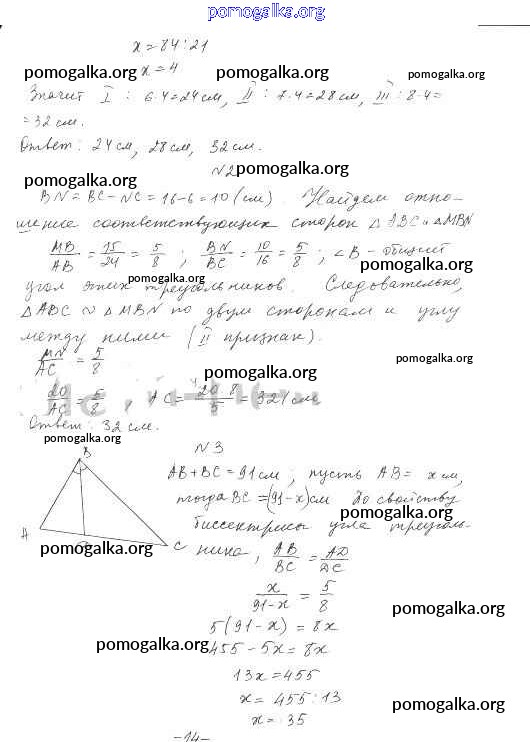 pomogalka.org
x = 84 : 21
pomogalka.org pomogalka.org pomogalka.org
x = 4
Значит I : 6·4=24 см, II : 7·4=28 см, III : 8·4=
=32 см.
Ответ: 24 см, 28 см, 32 см.
N2 pomogalka.org
BN = BC - NC = 16-6 = 10 (см). Найдем отно-
шение соответствующих сторон △ABC и △MBN
MB/AB = 15/24 = 5/8 ; BN/BC = 10/16 = 5/8 ; ∠B - общий
pomogalka.org pomogalka.org
угол этих треугольников. Следовательно,
△ABC ∾ △MBN по двум сторонам и углу
между ними (II признак).
MN/AC = 5/8
pomogalka.org
pomogalka.org
20/AC = 5/8 , AC = 20·8/5 = 32 см
Ответ: 32 см.
pomogalka.org
N3
B
AB+BC=91 см ; пусть AB= x см,
тогда BC =(91-x) см По свойству
pomogalka.org
биссектрисы угла треуголь-
A
C ника, AB/BC = AD/DC
pomogalka.org pomogalka.org
x/91-x = 5/8
pomogalka.org
5(91-x) = 8x
pomogalka.org
455 - 5x = 8x
13x = 455
x = 455 : 13
pomogalka.org
x = 35
-14-